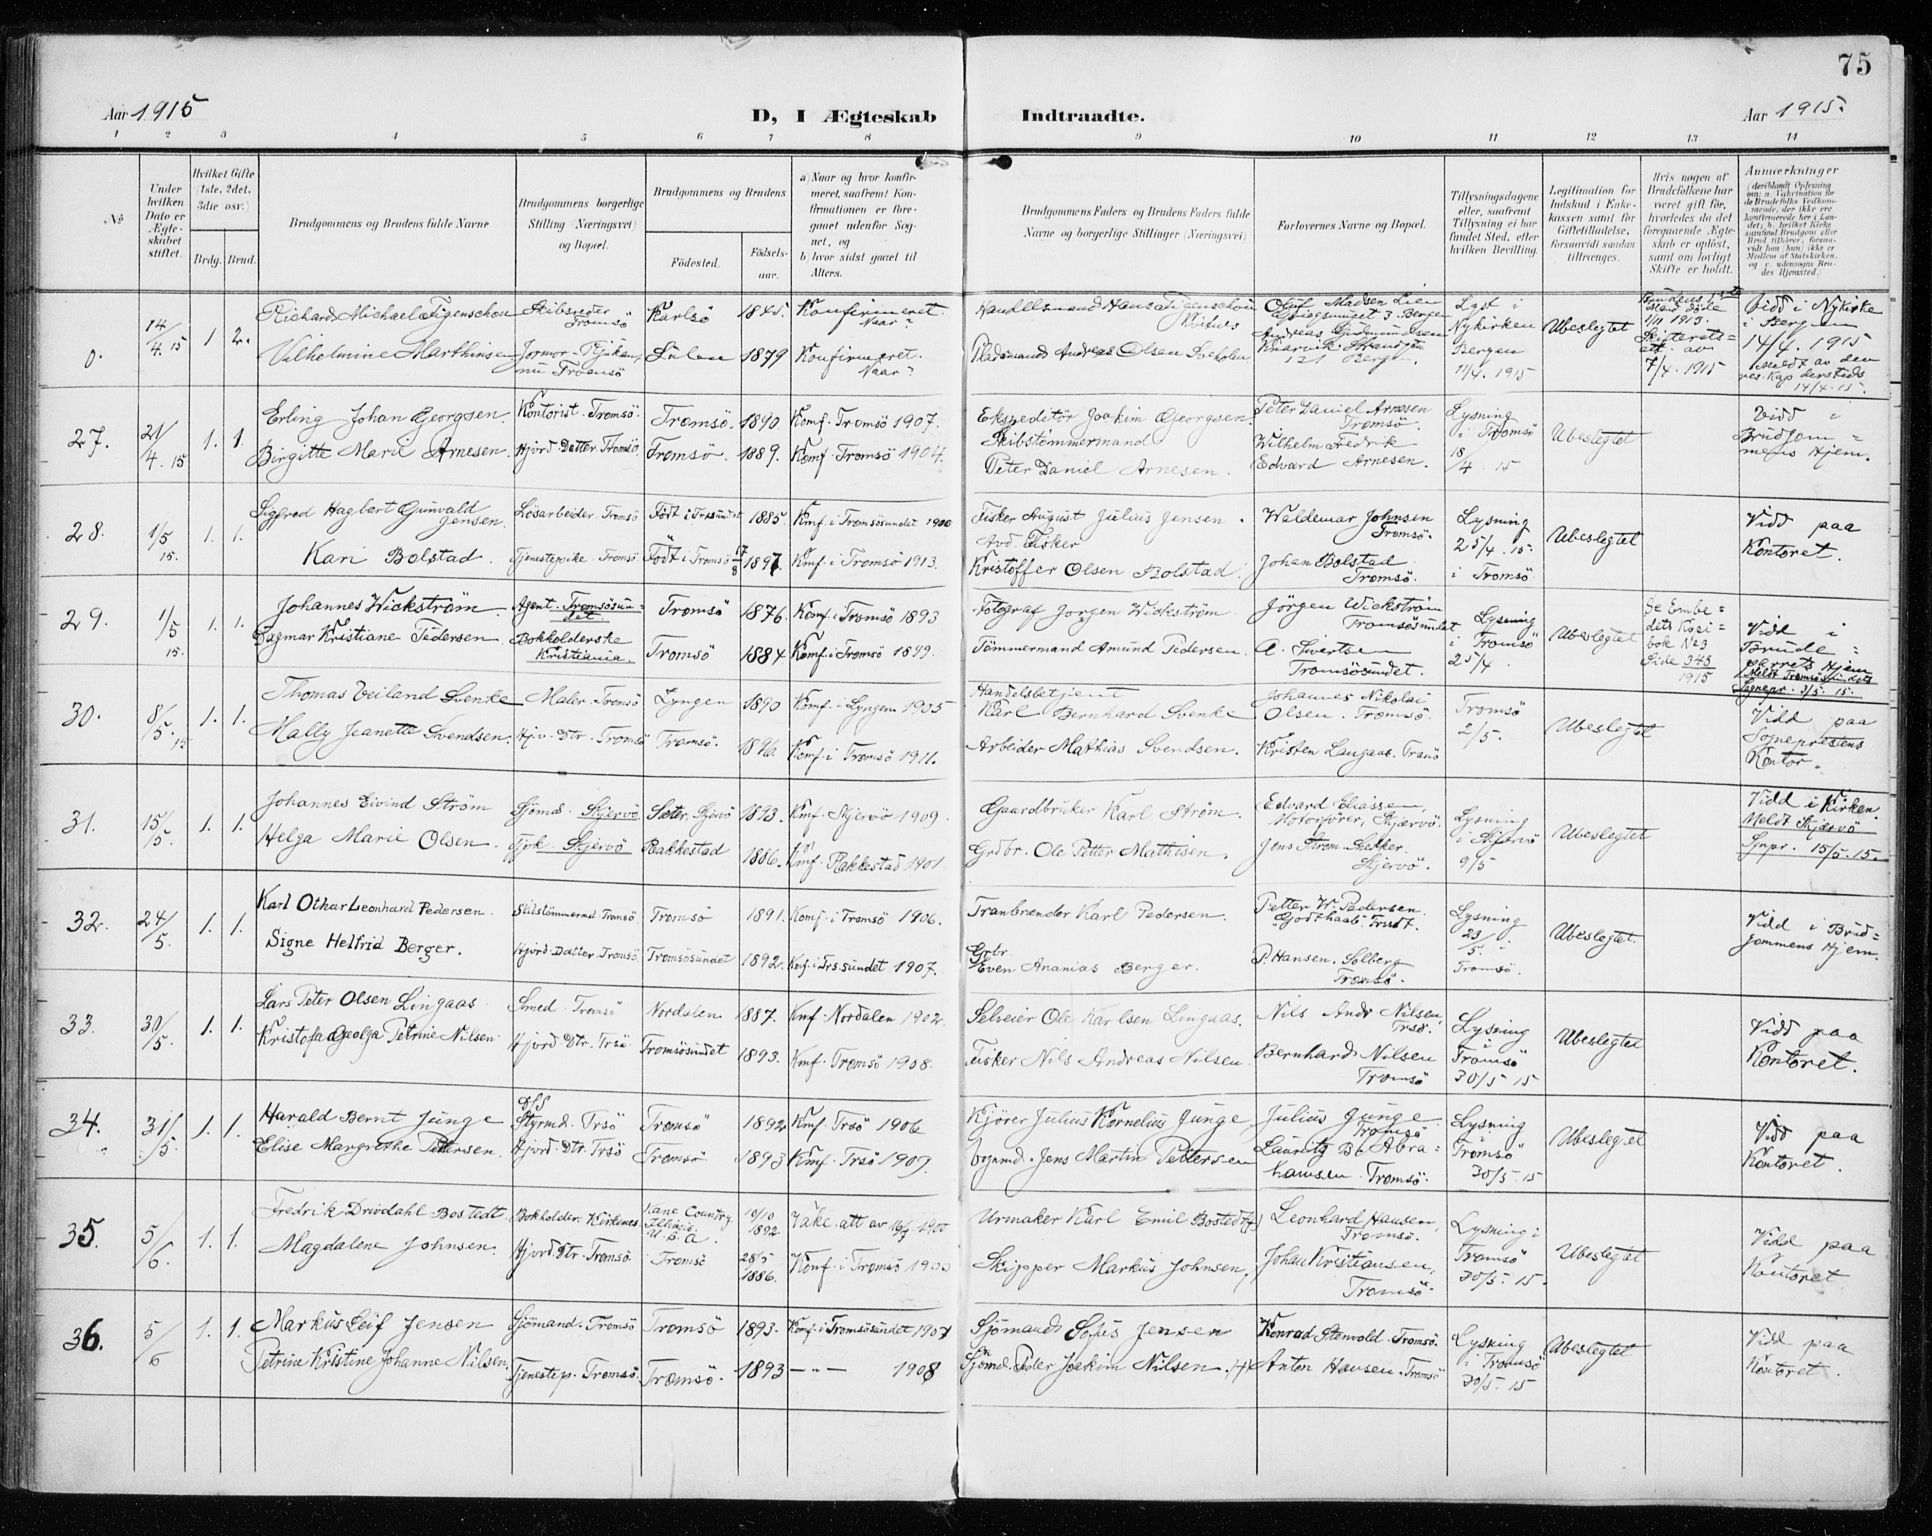 75
Aar 1915
D, I Ægteskab Indtraadte.
Aar 1915.
1 2 3 4 5 6 7 8 9 10 11 12 13 14
No
Under hvilken Dato er Ægteskabet stiftet.
Hvilket Gifte (1ste, 2det, 3die osv.)
Brdg. Brud.
Brudgommens og Brudens fulde Navne
Brudgommens borgerlige Stilling (Næringsvei) og Bopæl.
Brudgommens og Brudens
Fødested.
Fødselsaar.
a) Naar og hvor konfirmeret, saafremt Konfirmationen er foregaaet udenfor Sognet, og
b) hvor sidst gaaet til Alters.
Brudgommens Faders og Brudens Faders fulde Navne og borgerlige Stillinger (Næringsvei)
Forlovernes Navne og Bopæl.
Tillysningsdagene eller, saafremt Tillysning ei har fundet Sted, efter hvilken Bevilling.
Legitimation for Indskud i Enkekassen samt for Giftetilladelse, forsaavidt saadan tiltrænges.
Hvis nogen af Brudefolkene har været gift før, hvorledes da det foregaaende Ægteskab er opløst, samt om lovligt Skifte er holdt.
Anmerkninger
0. 14/4. 15 1 2.
Richard Michael Figenschou Skibsreder Tromsö Karlsö 1845. Konfirmeret. Naar?
Vilhelmine Marthinsen nu Tromsö 1879 Konfirmeret. Naar?
Handelsmand Hans Figenschou
Andreas Olsen
Oluf Madsen Lien 3. Bergen
Andreas Gudmundsen 121 Bergen.
Lyst i Nykirken Bergen 11/4. 1915
Ubeslegtet
7/4. 1915
Vidd i Nykirke i Bergen 14/4. 1915
Meldt av den res. Kap dersteds 14/4. 15.
27. 21/4. 15 1. 1.
Erling Johan Georgsen. Kontorist. Tromsö. Tromsö. 1890 Komf. Tromsö 1907.
Birgitte Marie Arnesen. Hjvrd. Datter Tromsö. Tromsö. 1889. Komf. Tromsö 1904.
Ekspeditör Joakim Georgsen.
Skibstömmermand Peter Daniel Arnesen.
Peter Daniel Arnesen Tromsö.
Wilhelm Fredrik Edvard Arnesen.
Lysning i Tromsö 18/4. 15
Ubeslegtet
Vidd i Brudgommens Hjem.
28. 1/5 15. 1. 1.
Sigfred Hagbart Gunvald Jensen. Lösarbeider. Tromsö Födt i Trsundet 1885 Kmf. i Tromsösundet 1900
Kari Bolstad. Tjenestepike. Tromsö Födt i Tromsö 17/8 1897 Kmf. i Tromsö 1913.
Fisker August Julius Jensen.
Avd. Fisker Kristoffer Olsen Bolstad.
Waldemar Johnsen Tromsö.
Johan Bolstad Tromsö.
Lysning 25/4. 15. i Tromsö
Ubeslegtet
Vidd paa Kontoret.
29. 1/5 15. 1. 1.
Johannes Wickström. Agent. Tromsösundet. Tromsö 1876 Komf. i Tromsö 1893
Dagmar Kristiane Pedersen Bokholderske Kristiania. Tromsö 1884 Komf. i Tromsö 1899.
Fotograf Jörgen Wickström
Tömmermand Amund Pedersen.
Jörgen Wickström Tromsösundet
A. Sivertsen Tromsösundet.
Lysning i Tromsö 25/4.
Ubeslegtet
Se Embedets Kopibok No 3 Side 343 1915
Vidd i Brudeparrets Hjem
Meldt Tromsösundets Sognepr. 3/5. 15.
30. 8/5. 15 1. 1.
Thomas Veiland Svenke Maler. Tromsö Lyngen 1890 Komf. i Lyngen 1905
Mally Jeanette Svendsen. Hjv. Dtr. Tromsö Tromsö. 1896. Komf. i Tromsö 1911.
Handelsbetjent Karl Bernhard Svenke
Arbeider Mathias Svendsen.
Johannes Nikolai Olsen. Tromsö.
Kristen Laugaas. Tromsö
Tromsö 2/5.
Ubeslegtet
Vidd paa Sogneprestens Kontor.
31. 15/5. 1. 1.
Johannes Eivind Ström Sjömd. Skjervö Sæter. Skjervö 1893. Kmf. Skjervö 1909.
Helga Marie Olsen. Tjpk. Skjervö Rakkestad 1886. Kmf. Rakkestad 1901
Gaardbruker Karl Ström.
Grdbr. Ole Petter Mathisen.
Edvard Eliassen, Motorförer, Skjervö.
Jens Ström. Skjervö.
Lysning i Skjervö 9/5
Ubeslegtet
Vidd i Kirken.
Meldt Skjervö Sgnpr. 15/5. 15.
32. 24/5. 1. 1.
Karl Othar Leonhard Pedersen. Skibstömmermd. Tromsö Tromsö 1891. Komf. i Tromsö 1906.
Signe Helfrid Berger. Hjvrd. Datter. Tromsö Tromsösundet 1892. Konf. i Trs.sundet 1907.
Tranbrænder Karl Pedersen.
Grbr. Even Ananias Berger.
Petter W. Pedersen. "Godthaab" Trsdt.
P. Hansen. Solberg Tromsö.
Lysning 23/5. i Tromsö.
Ubeslegtet.
Vidd i Brudgommens Hjem.
33. 30/5. 1. 1.
Lars Peter Olsen Lingaas. Smed. Tromsö Nordalen 1887. Kmf. Nordalen 1902.
Kristofa Georga Petrine Nilsen Hjvrd. Dtr. Trsö Tromsösundet 1893. Kmf. Tromsö 1908.
Selveier Ole Karlsen Lingaas.
Fisker Nils Andreas Nilsen.
Nils Andr. Nilsen, Trsö.
Bernhard Nilsen Tromsö
Lysning i Tromsö 30/5 15
Ubeslegtet
Vidd paa Kontoret.
34. 31/5 1. 1.
Harald Bernt Junge Styrmd. Trsö Tromsö 1892 Kmf. Trsö 1906
Elise Margrethe Pettersen. Hjvrd. Dtr. Trsö Tromsö. 1893 Kmf. Trsö 1909.
Kjörer Julius Kornelius Junge
Vognmd. Jens Martin Pettersen
Julius Junge Tromsö
Lauritz B. Abrahamsen. Tromsö.
Lysning i Tromsö 30/5. 15
Ubeslegtet
Vidd paa Kontoret.
35. 5/6. 1. 1.
Fredrik Drivdahl Bostedt Bokholder. Kirkenes. Kane Country U.S.A. 10/10 1892 Vakc. att av 1900
Magdalene Johnsen. Hjvrd Dtr. Tromsö. Tromsö 28/5 1886. Konf. i Tromsö 1900
Urmaker Karl Emil Bostedt
Skipper Markus Johnsen,
Leonhard Hansen, Tromsö.
Johan Kristiansen, Tromsö.
Lysning i Tromsö 30/5. 15.
Ubeslegtet
Vidd paa Kontoret
36. 5/6 1. 1.
Markus Leif Jensen Sjömand. Tromsö Tromsö 1893. Konf. i Tromsösundet 1907
Petrine Kristine Johanne Nilsen, Tjenestep. Tromsö. Tromsö. 1893 —"— 1908
Sjömand Sofus Jensen
Sjömd. Peder Joakim Nilsen
Konrad Stenvold. Tromsö.
Anton Hansen. Tromsö
Lysning i Tromsö 30/5. 15
Ubeslegtet
Vidd paa Kontoret.